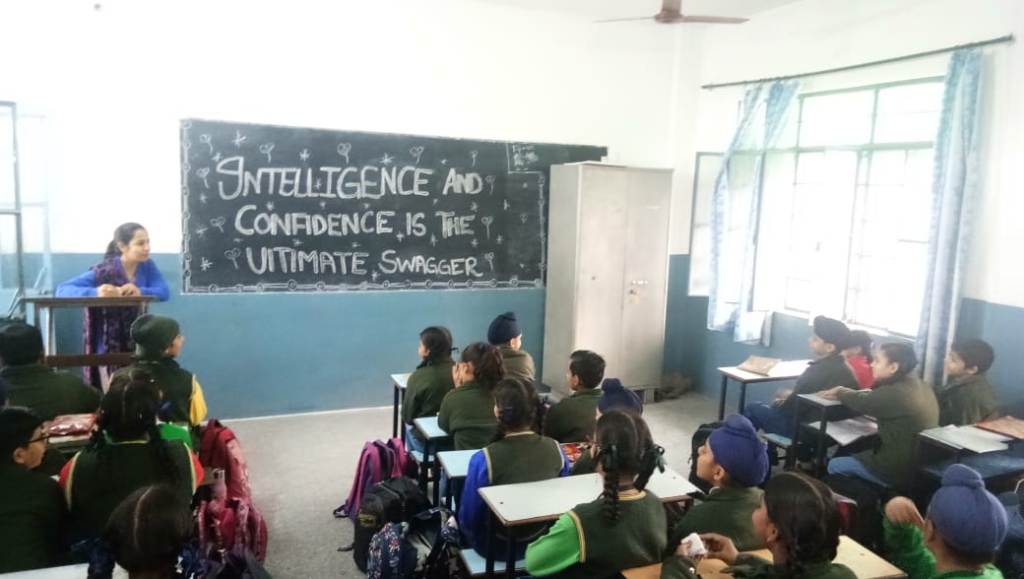 INTELLIGENCE AND
CONFIDENCE IS THE
ULTIMATE SWAGGER